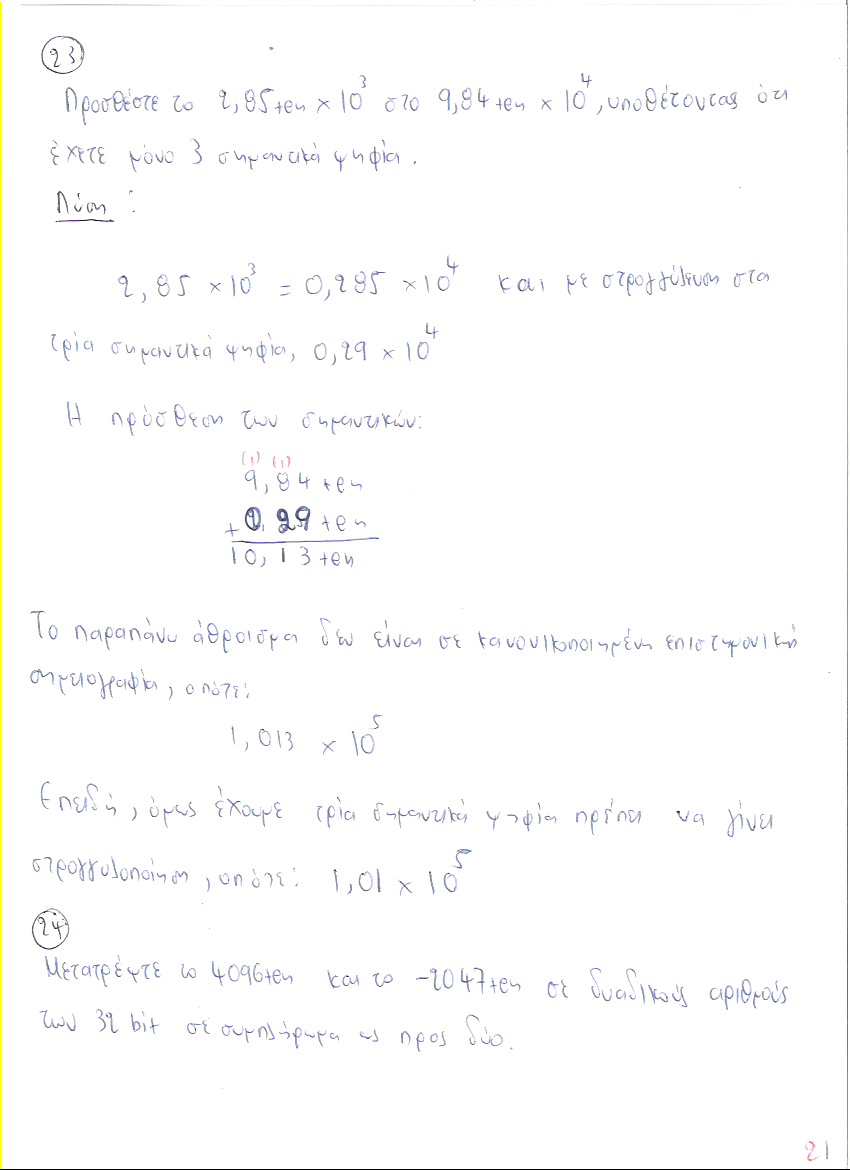 23
Προσθέστε το 2,85ten × 10³ στο 9,84ten × 10⁴, υποθέτοντας ότι
έχετε μόνο 3 σημαντικά ψηφία.
Λύση :
2,85 × 10³ = 0,285 × 10⁴ και με στρογγύλευση στα
τρία σημαντικά ψηφία, 0,29 × 10⁴
Η πρόσθεση των σημαντικών:
(1) (1)
9,84ten
+ 0,29ten
10,13ten
Το παραπάνω άθροισμα δεν είναι σε κανονικοποιημένη επιστημονική
σημειογραφία, οπότε:
1,013 × 10⁵
Επειδή, όμως έχουμε τρία σημαντικά ψηφία πρέπει να γίνει
στρογγυλοποίηση, οπότε: 1,01 × 10⁵
24
Μετατρέψτε το 4096ten και το -2047ten σε δυαδικούς αριθμούς
των 32 bit σε συμπλήρωμα ως προς δύο.
21